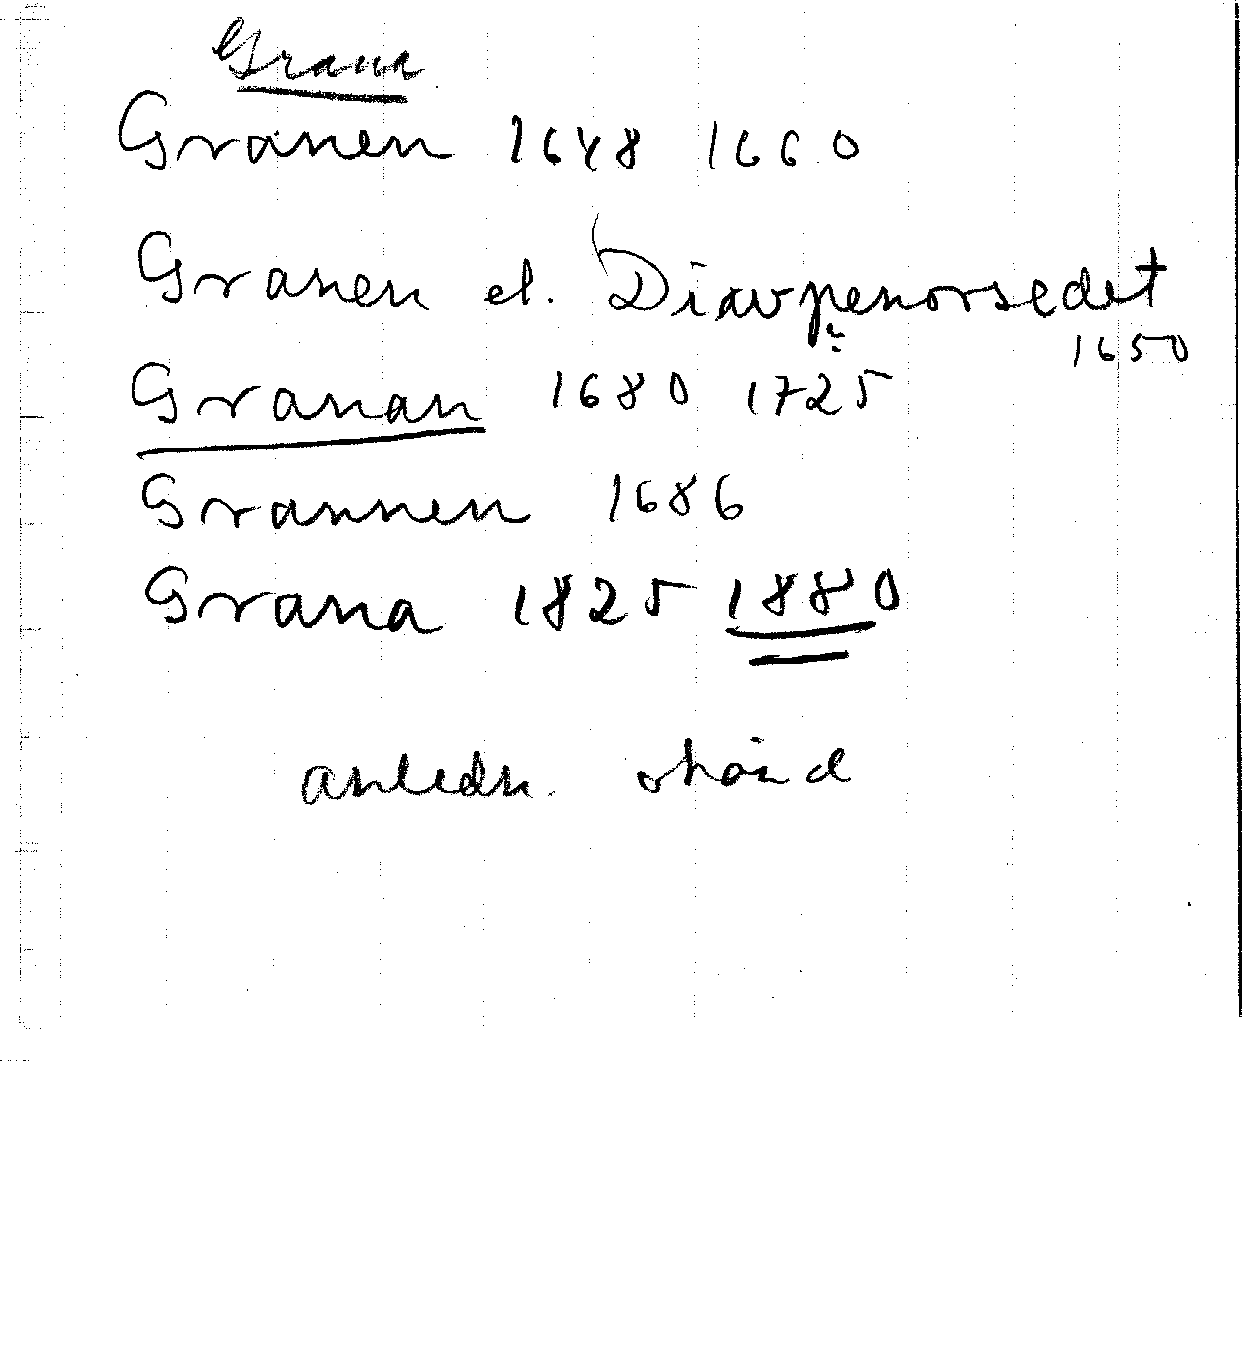 Grana
Granen 1648 1660
Granen el. Diavpenorsedet
1650
Granan 1680 1725
Grannen 1686
Grana 1825 1880
anledn. okänd